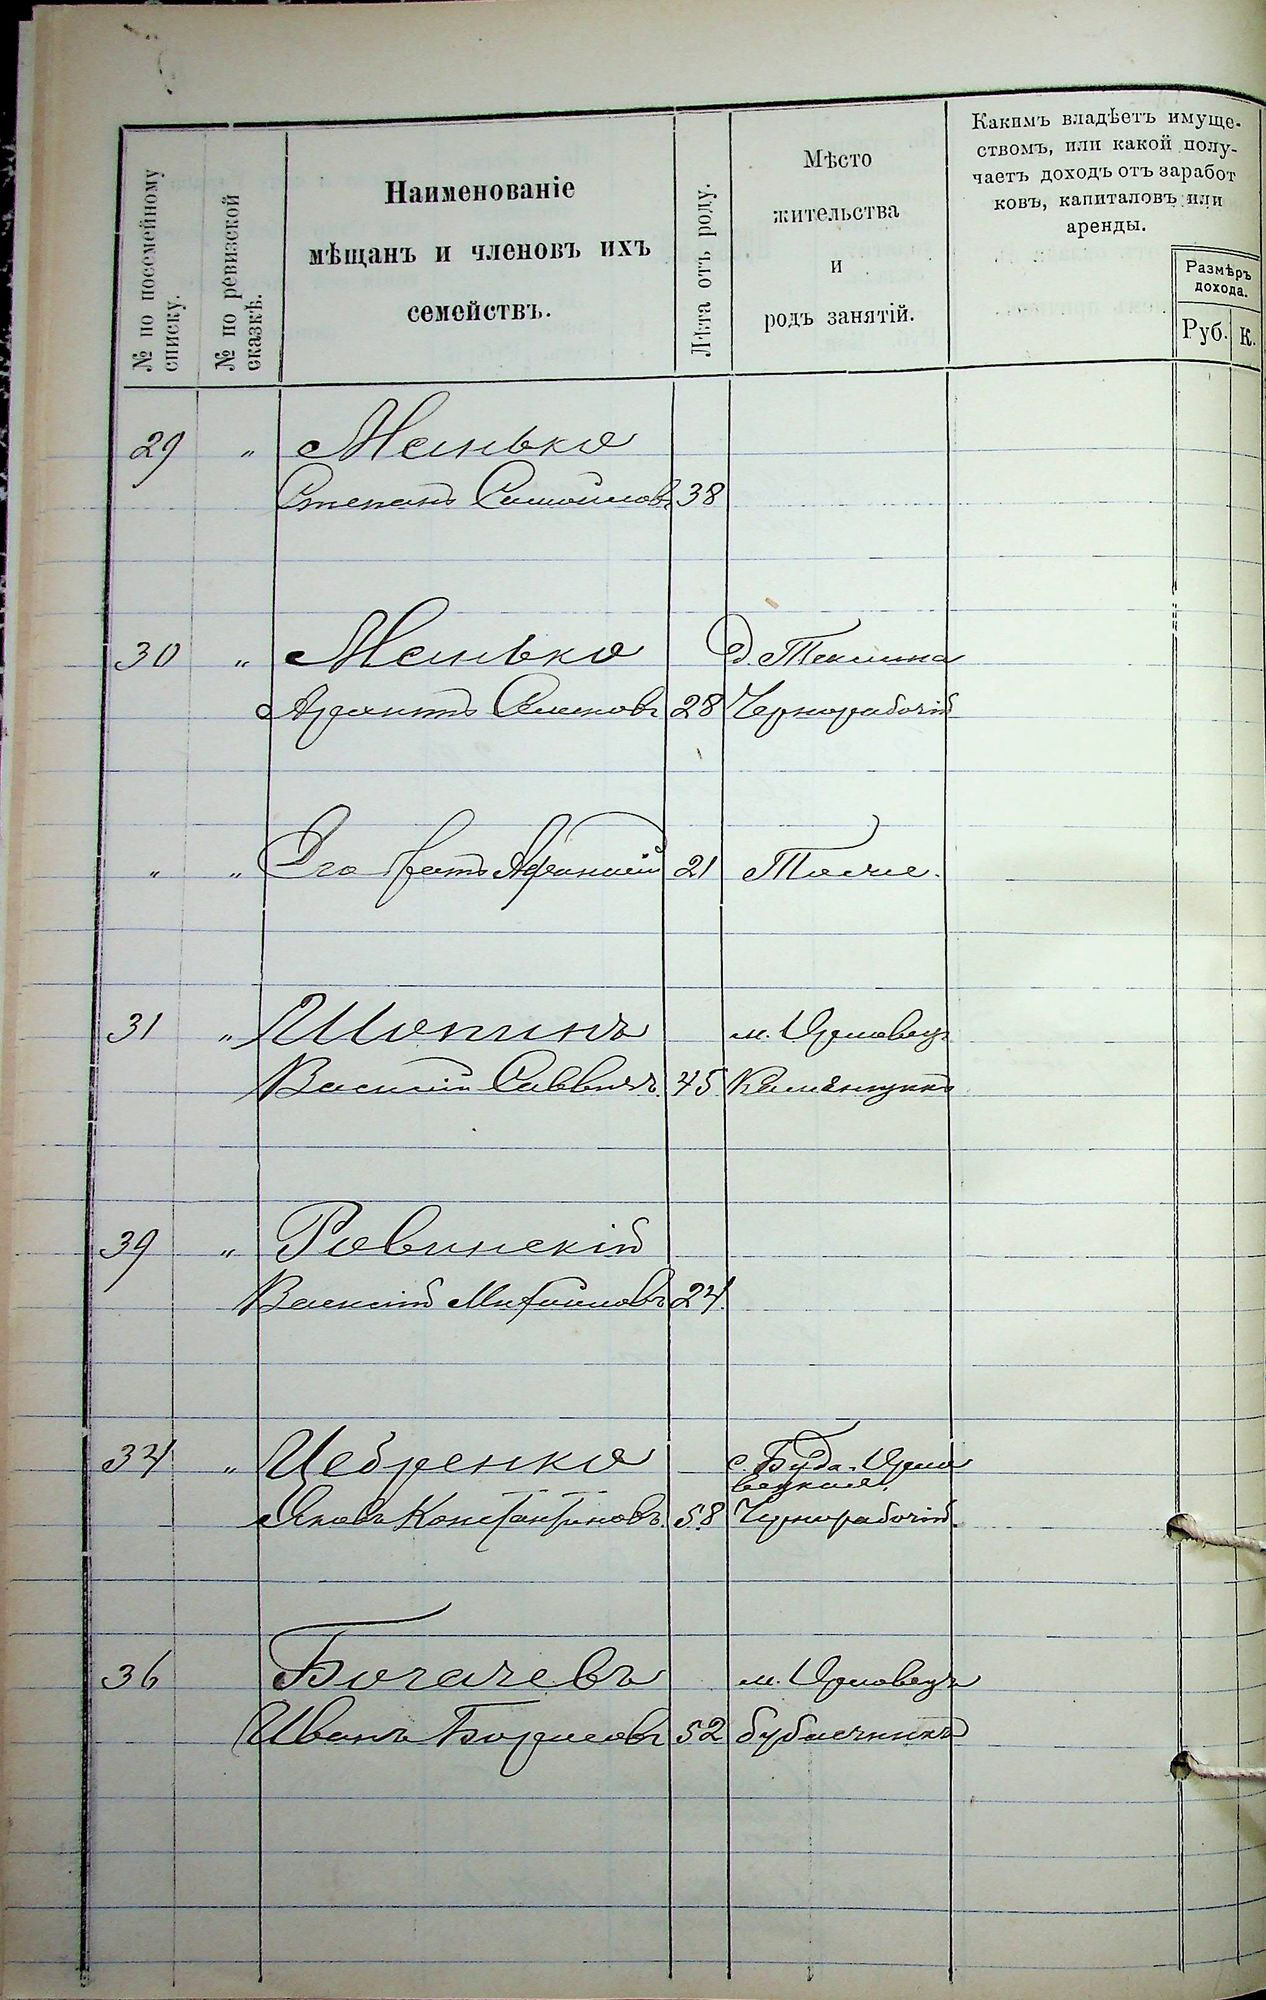 № по посемейному
списку.
№ по ревизской
сказкѣ.
Наименованіе
мѣщанъ и членовъ ихъ
семействъ.
Лѣта отъ роду.
Мѣсто
жительства
и
родъ занятій.
Какимъ владѣетъ имуще-
ствомъ, или какой полу-
чаетъ доходъ отъ заработ
ковъ, капиталовъ или
аренды.
Размѣръ
дохода.
Руб. К.
29 " Менько
Степанъ Самойловъ 38
30 " Менько д. Теклина
Семеновъ 28 Чернорабочій
" " Его братъ Афанасій 21 Тоже.
31 " Шопинъ м. Орловецъ
Василій Саввичъ. 45 Каменщикъ
39 " Ровинскій
Василій Михайловъ 24.
34 " Цебренко с. Буда-Орло
вецкая.
Яковъ Константиновъ. 58 Чернорабочій.
36 Богачевъ м. Орловецъ
Иванъ Борисовъ 52 бубличникъ